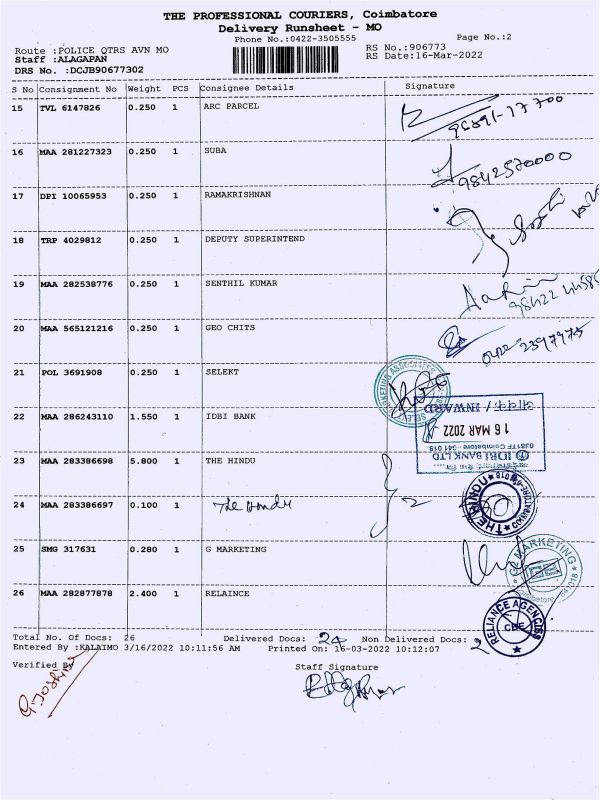 THE PROFESSIONAL COURIERS, Coimbatore
Delivery Runsheet - MO
Phone No.:0422-3505555 Page No.:2
Route :POLICE QTRS AVN MO RS No.:906773
Staff :ALAGAPAN RS Date:16-Mar-2022
DRS No. :DCJB90677302
S No Consignment No Weight PCS Consignee Details Signature
15 TVL 6147826 0.250 1 ARC PARCEL
16 MAA 281227323 0.250 1 SUBA 9842570000
17 DPI 10065953 0.250 1 RAMAKRISHNAN
18 TRP 4029812 0.250 1 DEPUTY SUPERINTEND
19 MAA 282538776 0.250 1 SENTHIL KUMAR
20 MAA 565121216 0.250 1 GEO CHITS
21 POL 3691908 0.250 1 SELEKT
22 MAA 286243110 1.550 1 IDBI BANK
INWARD
16 MAR 2022
IDBI BANK LTD
23 MAA 283386698 5.800 1 THE HINDU
THE HINDU
24 MAA 283386697 0.100 1 The Hindu
25 SMG 317631 0.280 1 G MARKETING
G MARKETING
Coimbatore
26 MAA 282877878 2.400 1 RELAINCE
RELIANCE AGENCIES
CBE
Total No. Of Docs: 26 Delivered Docs: 24 Non Delivered Docs: 2
Entered By :KALAIMO 3/16/2022 10:11:56 AM Printed On: 16-03-2022 10:12:07
Verified By Staff Signature